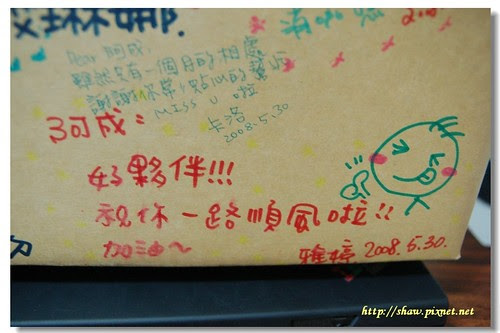 艾琳娜.
Dear 阿成,
雖然只有一個月的相處
謝謝你常
MISS U 啦
卡洛
2008.5.30
阿成:
好夥伴!!!
祝你一路順風啦!!
加油~
雅婷 2008.5.30.
http://shaw.pixnet.net